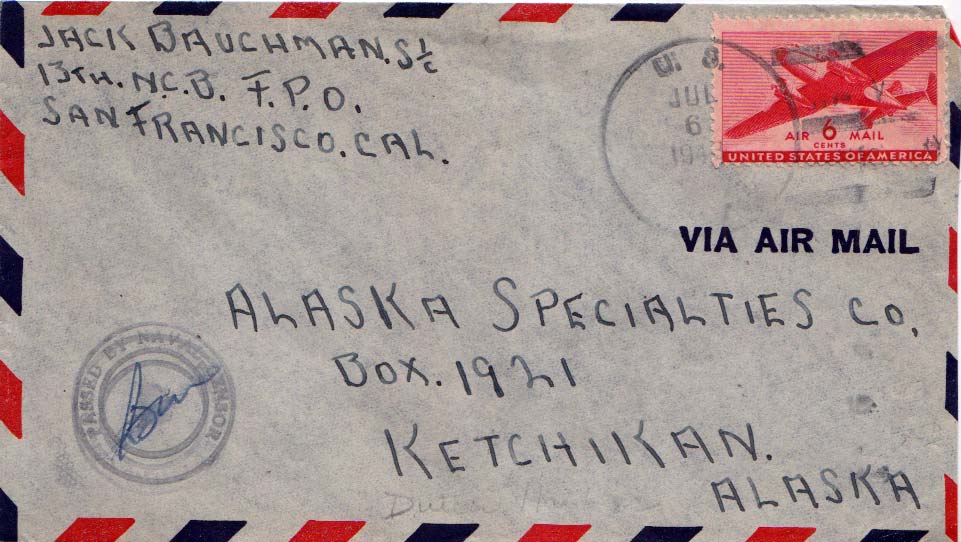 JACK BAUCHMAN. S1/c
13TH. N.C.B. F.P.O.
SAN FRANCISCO. CAL.
U. S.
JUL
6
AIR 6 MAIL
CENTS
UNITED STATES OF AMERICA
VIA AIR MAIL
ALASKA SPECIALTIES CO.
BOX. 1921
PASSED BY NAVAL CENSOR
KETCHIKAN.
ALASKA